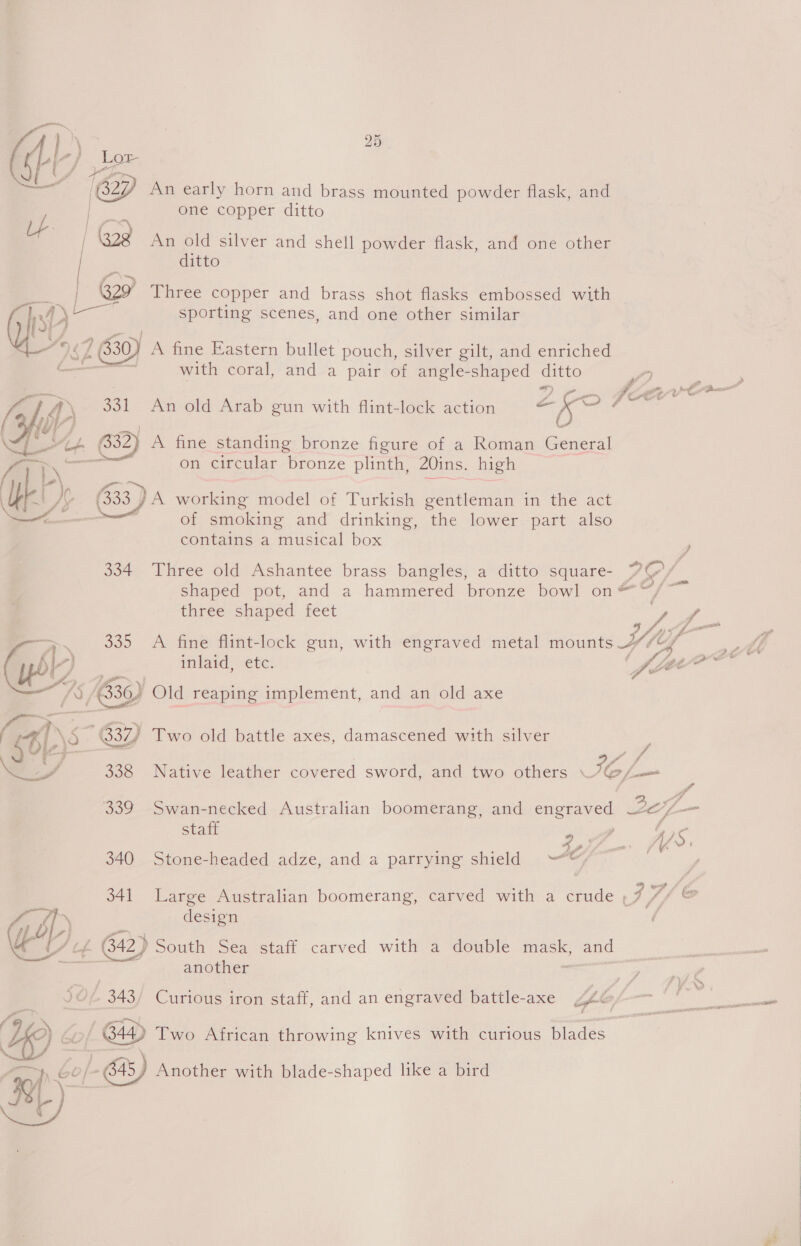 25
Lot
327 An early horn and brass mounted powder flask, and
one copper ditto
328 An old silver and shell powder flask, and one other
ditto
329 Three copper and brass shot flasks embossed with
sporting scenes, and one other similar
330 A fine Eastern bullet pouch, silver gilt, and enriched
with coral, and a pair of angle-shaped ditto
331 An old Arab gun with flint-lock action
332 A fine standing bronze figure of a Roman General
on circular bronze plinth, 20ins. high
333 A working model of Turkish gentleman in the act
of smoking and drinking, the lower part also
contains a musical box
334 Three old Ashantee brass bangles, a ditto square-
shaped pot, and a hammered bronze bowl on
three shaped feet
335 A fine flint-lock gun, with engraved metal mounts
inlaid, etc.
336 Old reaping implement, and an old axe
337 Two old battle axes, damascened with silver
338 Native leather covered sword, and two others
339 Swan-necked Australian boomerang, and engraved
staff
340 Stone-headed adze, and a parrying shield
341 Large Australian boomerang, carved with a crude
design
342 South Sea staff carved with a double mask, and
another
343 Curious iron staff, and an engraved battle-axe
344 Two African throwing knives with curious blades
60/- 345 Another with blade-shaped like a bird